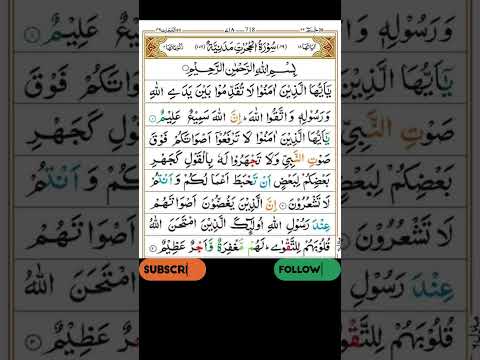 سُوْرَةُ الْحُجُرٰتِ مَدَنِيَّةٌ
بِسْمِ اللهِ الرَّحْمٰنِ الرَّحِيْمِ
يٰۤاَيُّهَا الَّذِيْنَ اٰمَنُوْا لَا تُقَدِّمُوْا بَيْنَ يَدَيِ اللهِ
وَرَسُوْلِهٖ وَاتَّقُوا اللهَ ؕ اِنَّ اللهَ سَمِيْعٌ عَلِيْمٌ ۱
يٰۤاَيُّهَا الَّذِيْنَ اٰمَنُوْا لَا تَرْفَعُوْۤا اَصْوَاتَكُمْ فَوْقَ
صَوْتِ النَّبِيِّ وَلَا تَجْهَرُوْا لَهٗ بِالْقَوْلِ كَجَهْرِ
بَعْضِكُمْ لِبَعْضٍ اَنْ تَحْبَطَ اَعْمَالُكُمْ وَاَنْتُمْ
لَا تَشْعُرُوْنَ ۲ اِنَّ الَّذِيْنَ يَغُضُّوْنَ اَصْوَاتَهُمْ
عِنْدَ رَسُوْلِ اللهِ اُولٰٓئِكَ الَّذِيْنَ امْتَحَنَ اللهُ
قُلُوْبَهُمْ لِلتَّقْوٰى ؕ لَهُمْ مَّغْفِرَةٌ وَّاَجْرٌ عَظِيْمٌ ۳
SUBSCRI
FOLLOW